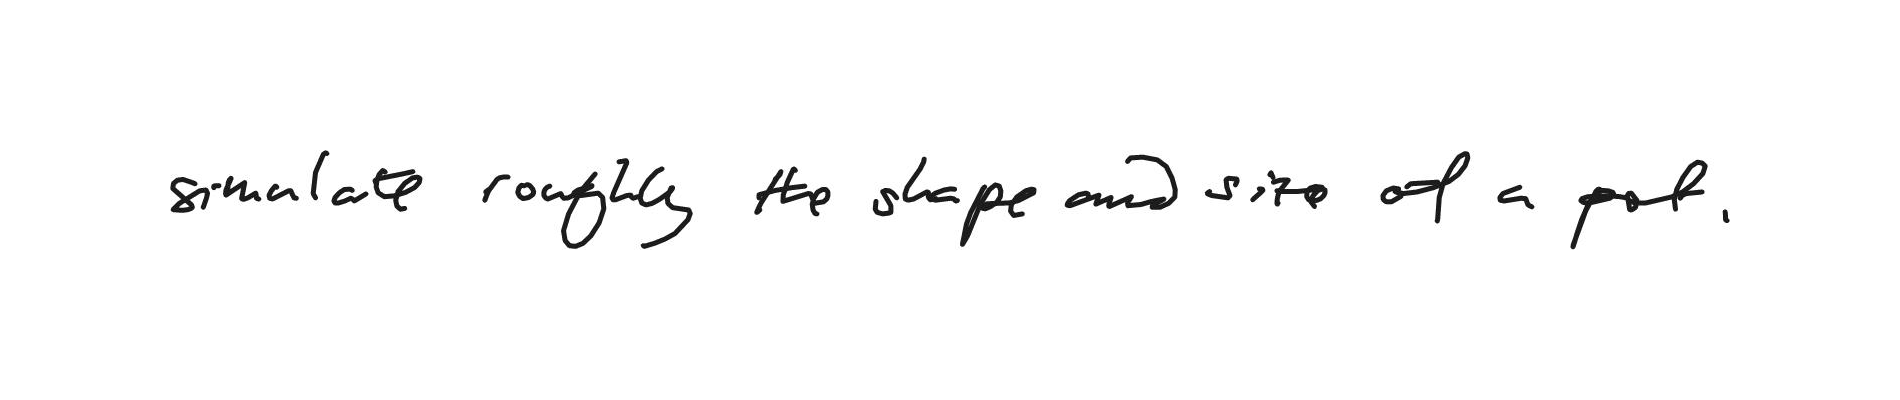 simulate roughly the shape and size of a pot.